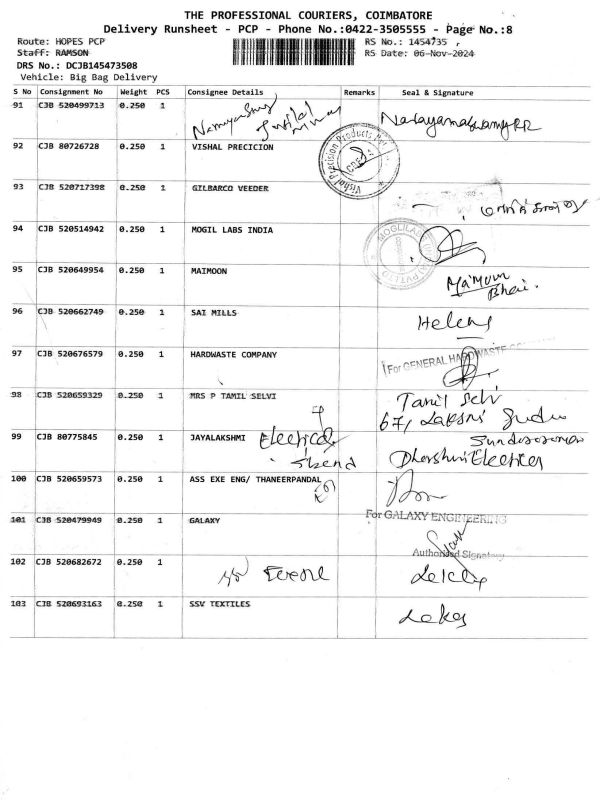 THE PROFESSIONAL COURIERS, COIMBATORE
Delivery Runsheet - PCP - Phone No.:0422-3505555 - Page No.:8
Route: HOPES PCP RS No.: 1454735
Staff: RAMSON RS Date: 06-Nov-2024
DRS No.: DCJB145473508
Vehicle: Big Bag Delivery
S No Consignment No Weight PCS Consignee Details Remarks Seal & Signature
91 CJB 520499713 0.250 1 Narayanaswamy RR
92 CJB 80726728 0.250 1 VISHAL PRECICION Vishal Precision Products Pvt
93 CJB 520717398 0.250 1 GILBARCO VEEDER
94 CJB 520514942 0.250 1 MOGIL LABS INDIA
95 CJB 520649954 0.250 1 MAIMOON Maimoon
Bhai.
96 CJB 520662749 0.250 1 SAI MILLS Helens
97 CJB 520676579 0.250 1 HARDWASTE COMPANY For GENERAL HARDWASTE
98 CJB 520659329 0.250 1 MRS P TAMIL SELVI Tamil Selvi
67,
99 CJB 80775845 0.250 1 JAYALAKSHMI Electricals
100 CJB 520659573 0.250 1 ASS EXE ENG/ THANEERPANDAL
101 CJB 520479949 0.250 1 GALAXY For GALAXY ENGINEERING
Authorised Signatory
102 CJB 520682672 0.250 1
103 CJB 520693163 0.250 1 SSV TEXTILES